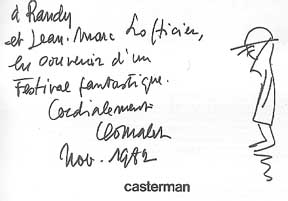 à Randy
et Jean-Marc Lofficier,
en souvenir d'un
Festival fantastique.
Cordialement
Nov. 1982
casterman